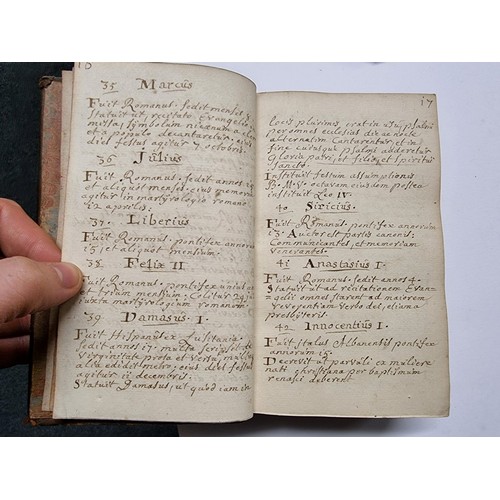 35 Marcus
Fuit Romanus. sedit menses 7
statuit ut, recitato Evangelio
missa, symbolum nicænum a clero
et a populo decantaretur,
diei festus agitur 7 octobris.
36 Julius
Fuit Romanus. sedit annos
et aliquot menses. eius memoria
agitur in martyrologio romano
12 aprilis.
37. Liberius
Fuit Romanus. pontifex annorum
15 et aliquot mensium.
38 Felix II
Fuit Romanus. pontifex unius et
mensium. Colitur 29
iuxta martyrilogium romanum
39 Damasus I.
Fuit Hispanus ex Lusitania
sedit annos 17. multa
Virginitate prosa et Verbo,
alia edidit metro. eius diei festus
agitur 11 decembris.
Statuit Damasus, ut quod iam in
17
locis plurimis erat in usu, psalmi
per omnes ecclesias die ac nocte
alternatim Cantarentur et in
fine cuiusque psalmi adderetur
gloria patri, et filio et spiritui
sancto.
Instituit festum assumptionis
B. M. V. octavam eiusdem postea
instituit Leo IV.
40 Siricius.
Fuit Romanus. pontifex annorum
Auctor est partis canonis.
Communicantes, et memoriam
Venerantes.
41 Anastasius I.
Fuit Romanus. sedit annos 4.
Statuit ut ad recitationem Evan-
gelii omnes starent ad maiorem
reverentiam verbo dei, etiam
presbyteris.
42 Innocentius I.
Fuit Italus Albanensis pontifex
annorum 15.
Decrevit ut parvuli ex muliere
nati christiana per baptismum
renasci deberent